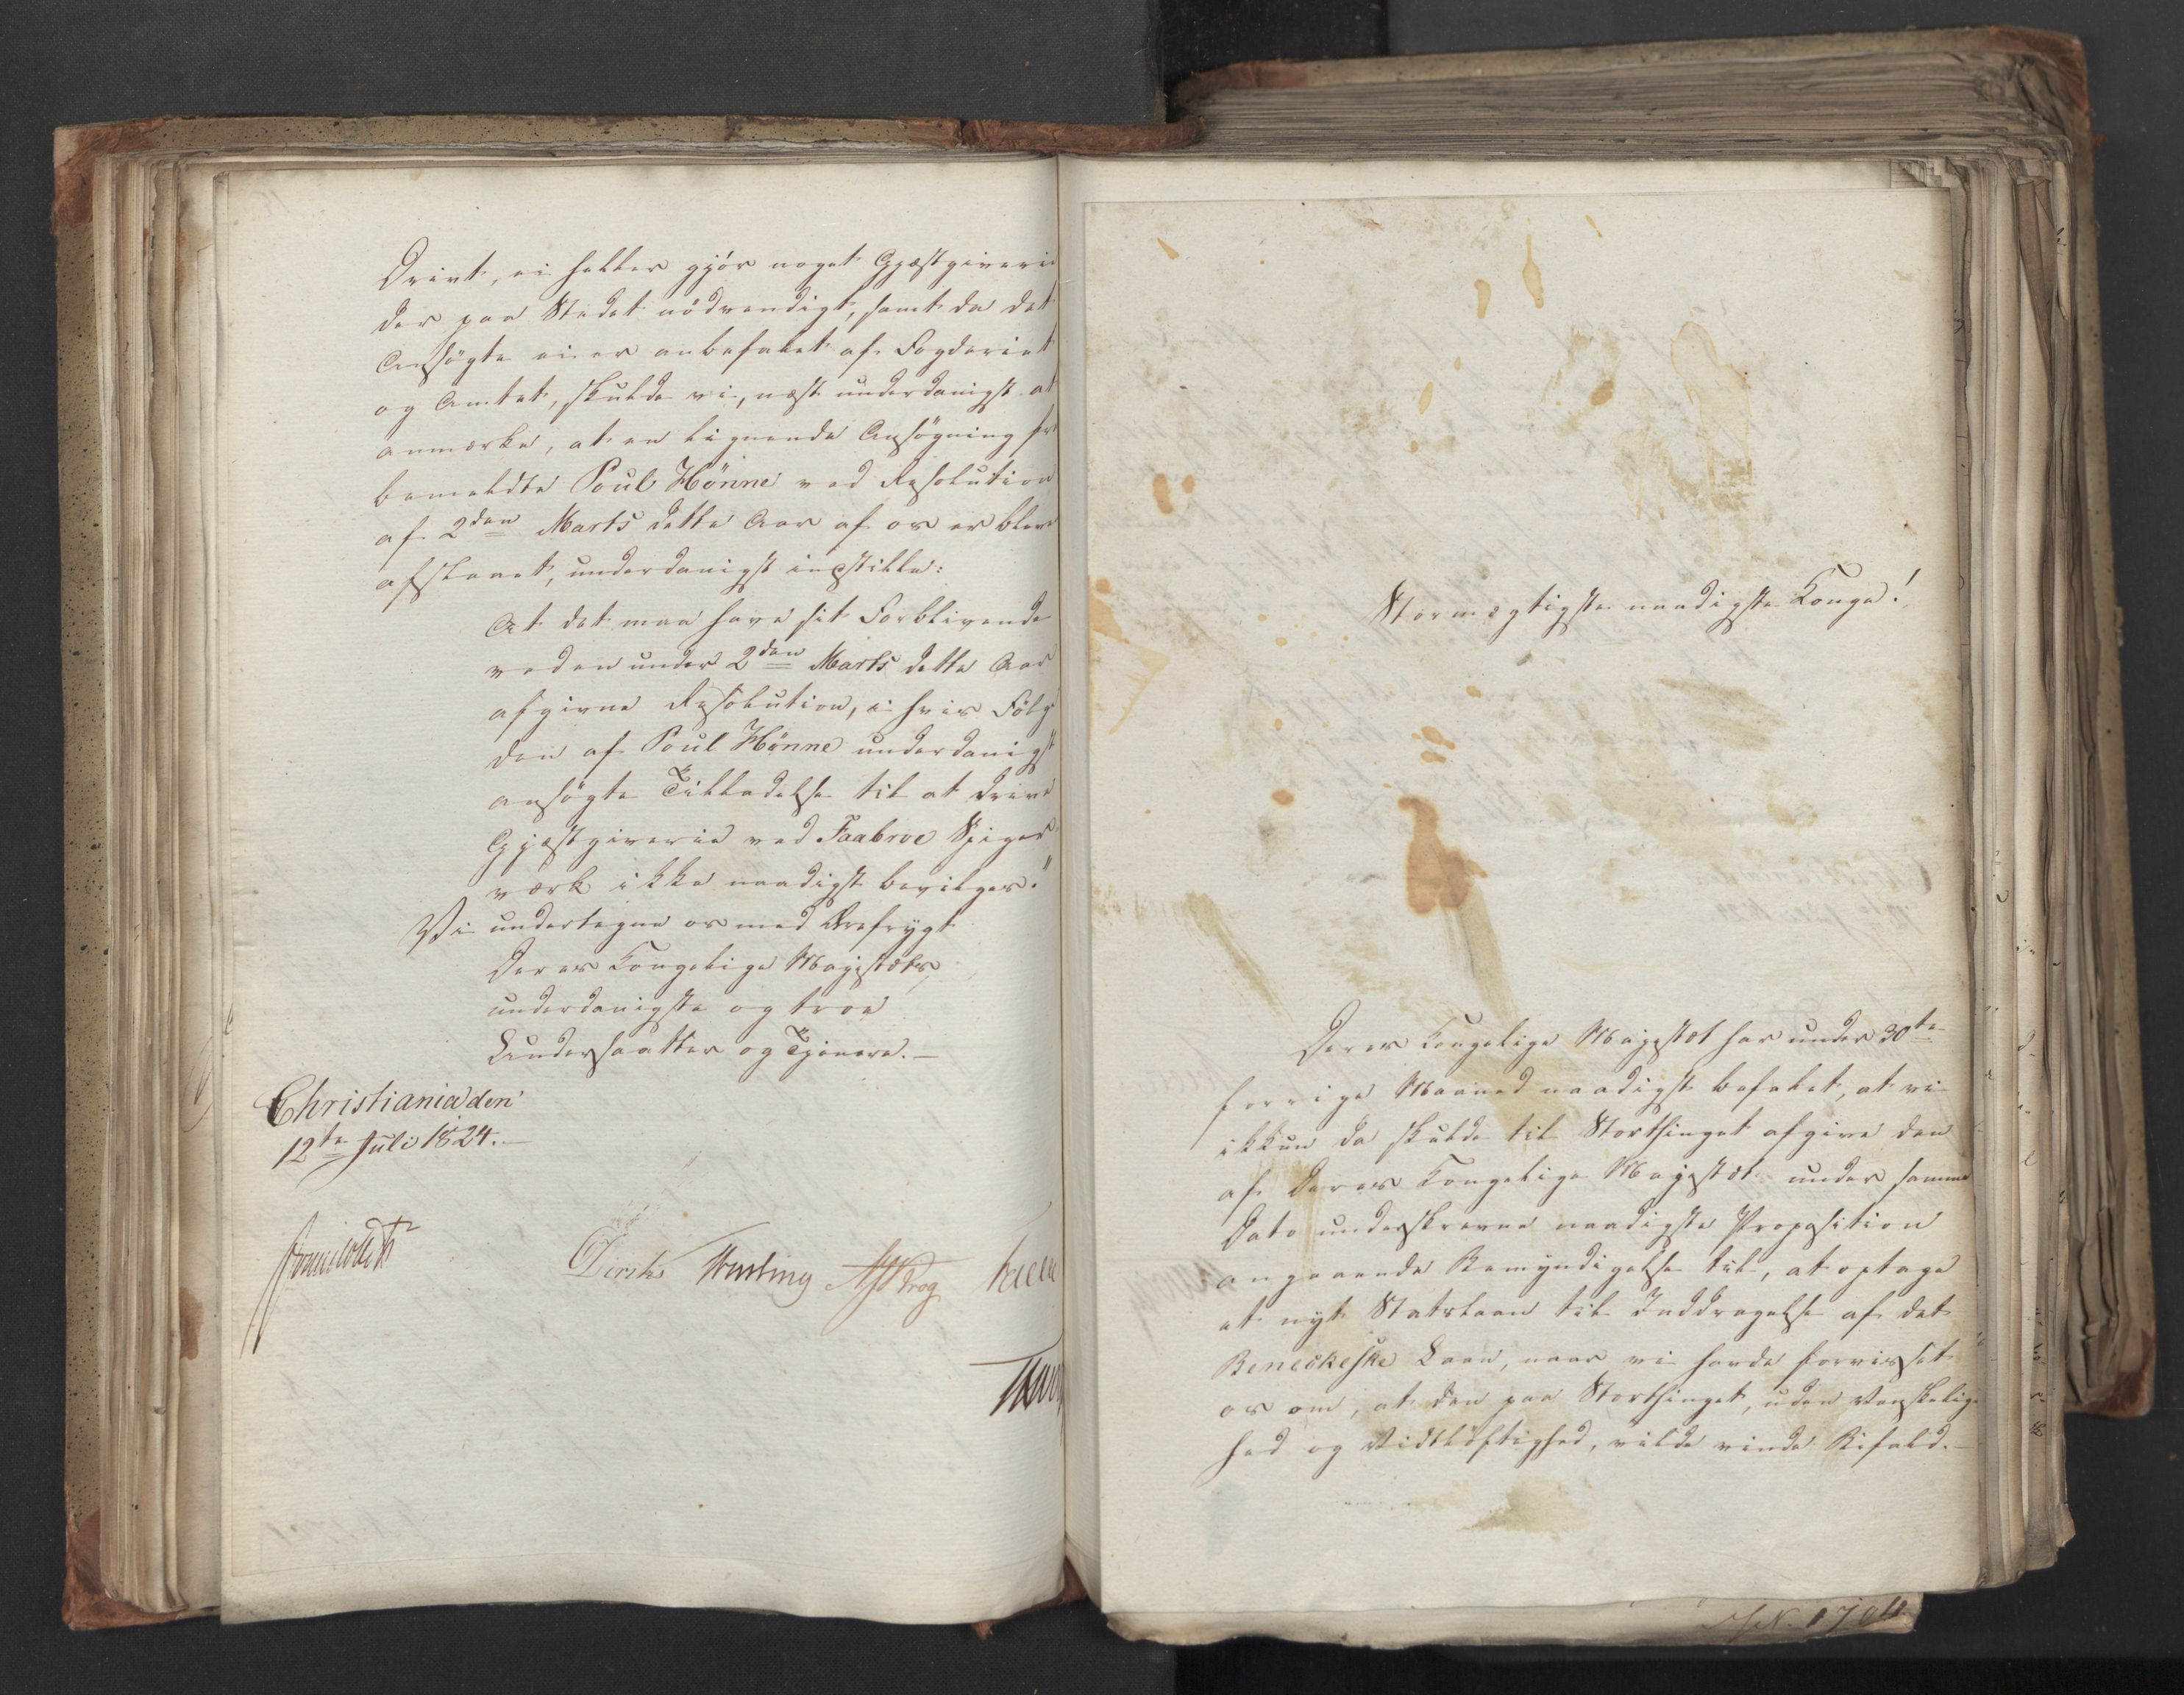 Drivt, ei heller gjör noget Gjæstgiverie
der paa Stedet nödvendigt, samt da det
Ansögte ei er anbefalet af Fogderiet
og Amtet, skulde vi, næst underdanigst at
anmærke, at en lignende Ansögning fra
bemeldte Poul Hönne ved Resolution
af 2den Marts dette Aar af os er bleve
afslaaet, underdanigst indstille:
At det maa have sit Forblivende
ved en under 2den Marts dette Aar
afgivne Resolution, i hvis Fölge
den af Poul Hönne underdanigst
ansögte Tilladelse til at drive
Gjæstgiverie ved Faabroe Spiger
værk ikke naadigst bevilges."
Vi undertegne os med Ærefrygt
Deres Kongelige Majestæts,
underdanigste og troe
Undersaatter og Tjenere.-
Christiania den
12te Juli 1824.-
Sommerhielm
Diriks Hersling J H Krog Fasting
Deres
Stormægtigste naadigste Konge!
Deres Kongelige Majestæt har under 30te
forrige Maaned naadigst befalet, at vi
ikkun da skulde til Storthinget afgive den
af Deres Kongelige Majestæt under samme
Dato underskrevne naadigste Proposition
angaaende Bemyndigelse til, at optage
et nyt Statslaan til Inddragelse af det
Beneckeske Laan, naar vi havde forvisset
os om, at den paa Storthinget, uden Vanskelig-
hed og Vidtlöftighed, vilde vinde Bifald.-